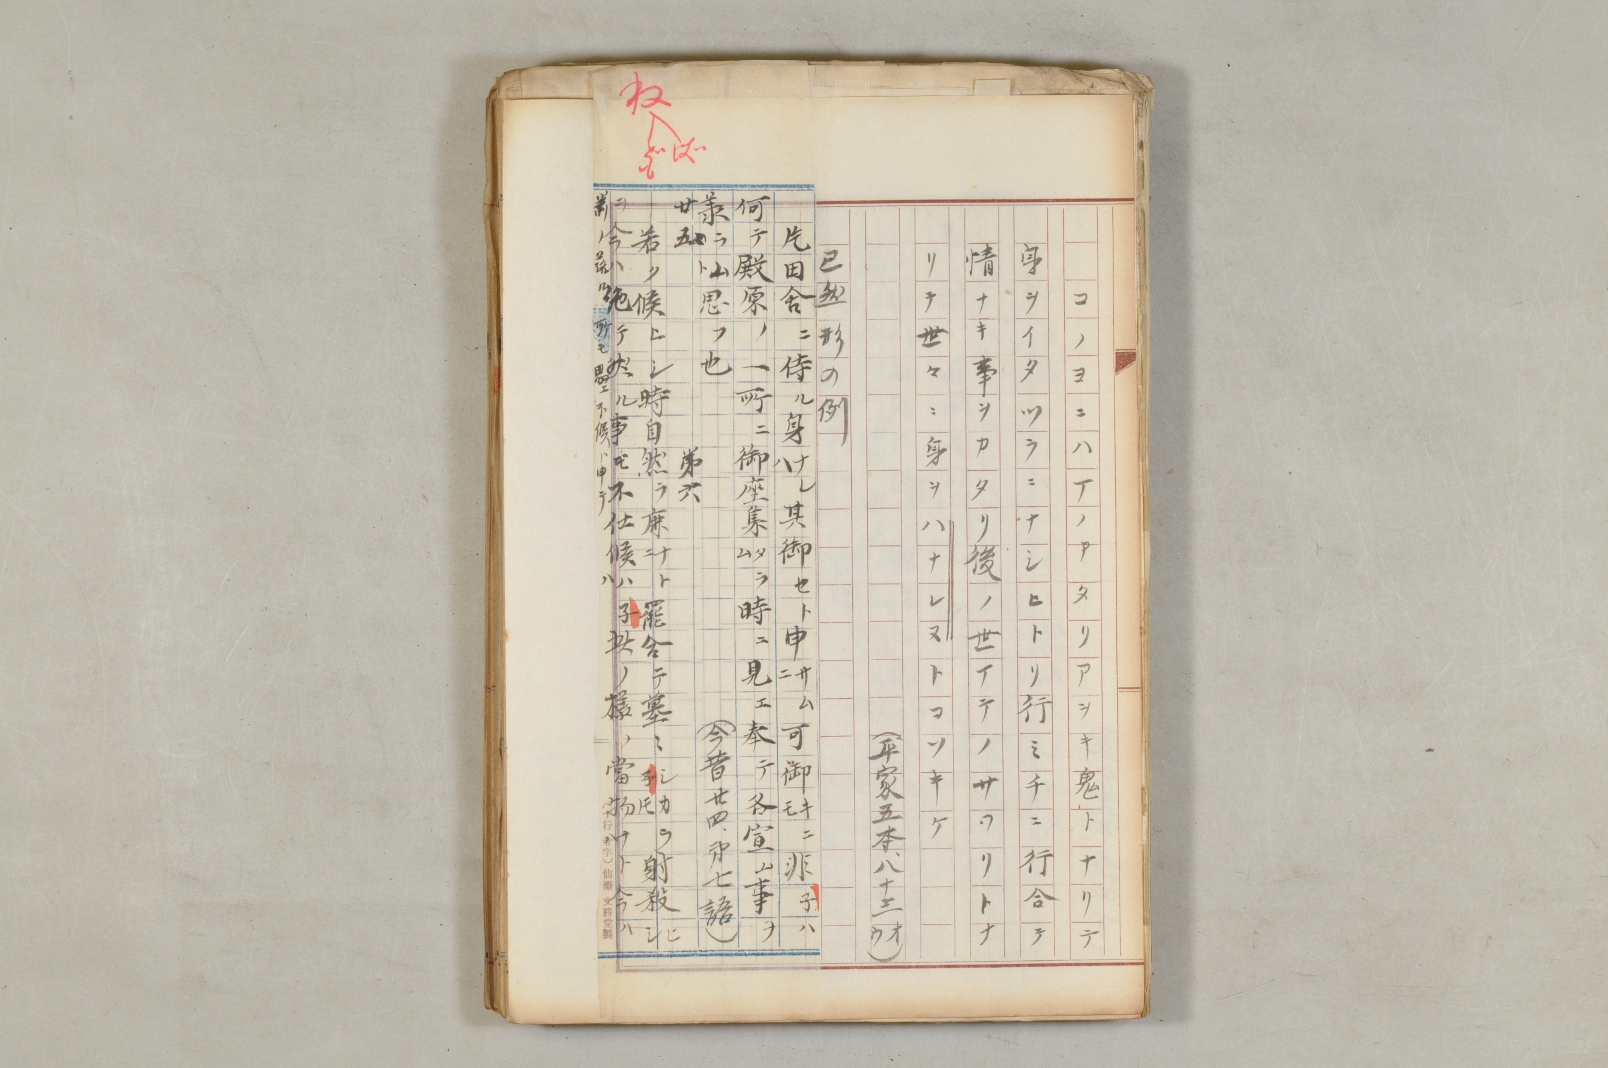 コノヨニハイノアタリアシキ鬼トナリテ
身ヲイタツラニナシヒトリ行ミチニ行合テ
情ナキ事ヲカタリ後ノ世イテノサワリトナ
リテ世々ニ身ヲハナレストコソキケ
(平家五本八十三オウ)
已然形の例
片田舎ニ侍ル身ナレハ其御セト申サムニ可御キニモ非子ハ
何テ殿原ノ一所ニ御座集タラム時ニ見エ奉テ各宣ム事ヲ
ラムト思フ也
(今昔廿四、第七語)
廿五 第六
若ク候ヒシ時自然ラ鹿ナトニ罷合テ墓ミシカラ子トモ射殺シヒ
ニ今ハ絶テ然ル事モ不仕候ハハ子共ノ様ノ當物ナト今ハ
箭ノ落ル所モ思エ不候ト申テ
ネ
ば
ども
文寿堂製